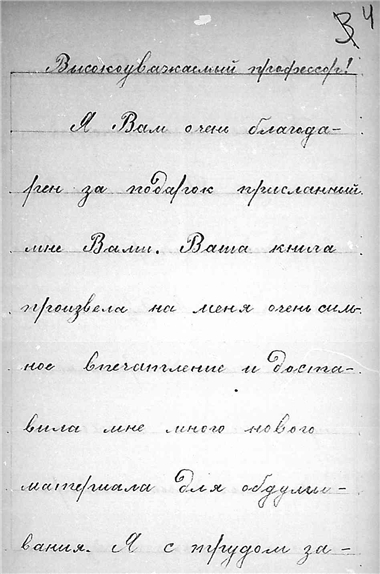 3 4
Высокоуважаемый профессор!
Я Вам очень благода-
рен за подарок присланный
мне Вами. Ваша книга
произвела на меня очень силь-
ное впечатление и доста-
вила мне много нового
материала для обдумы-
вания. Я с трудом за-